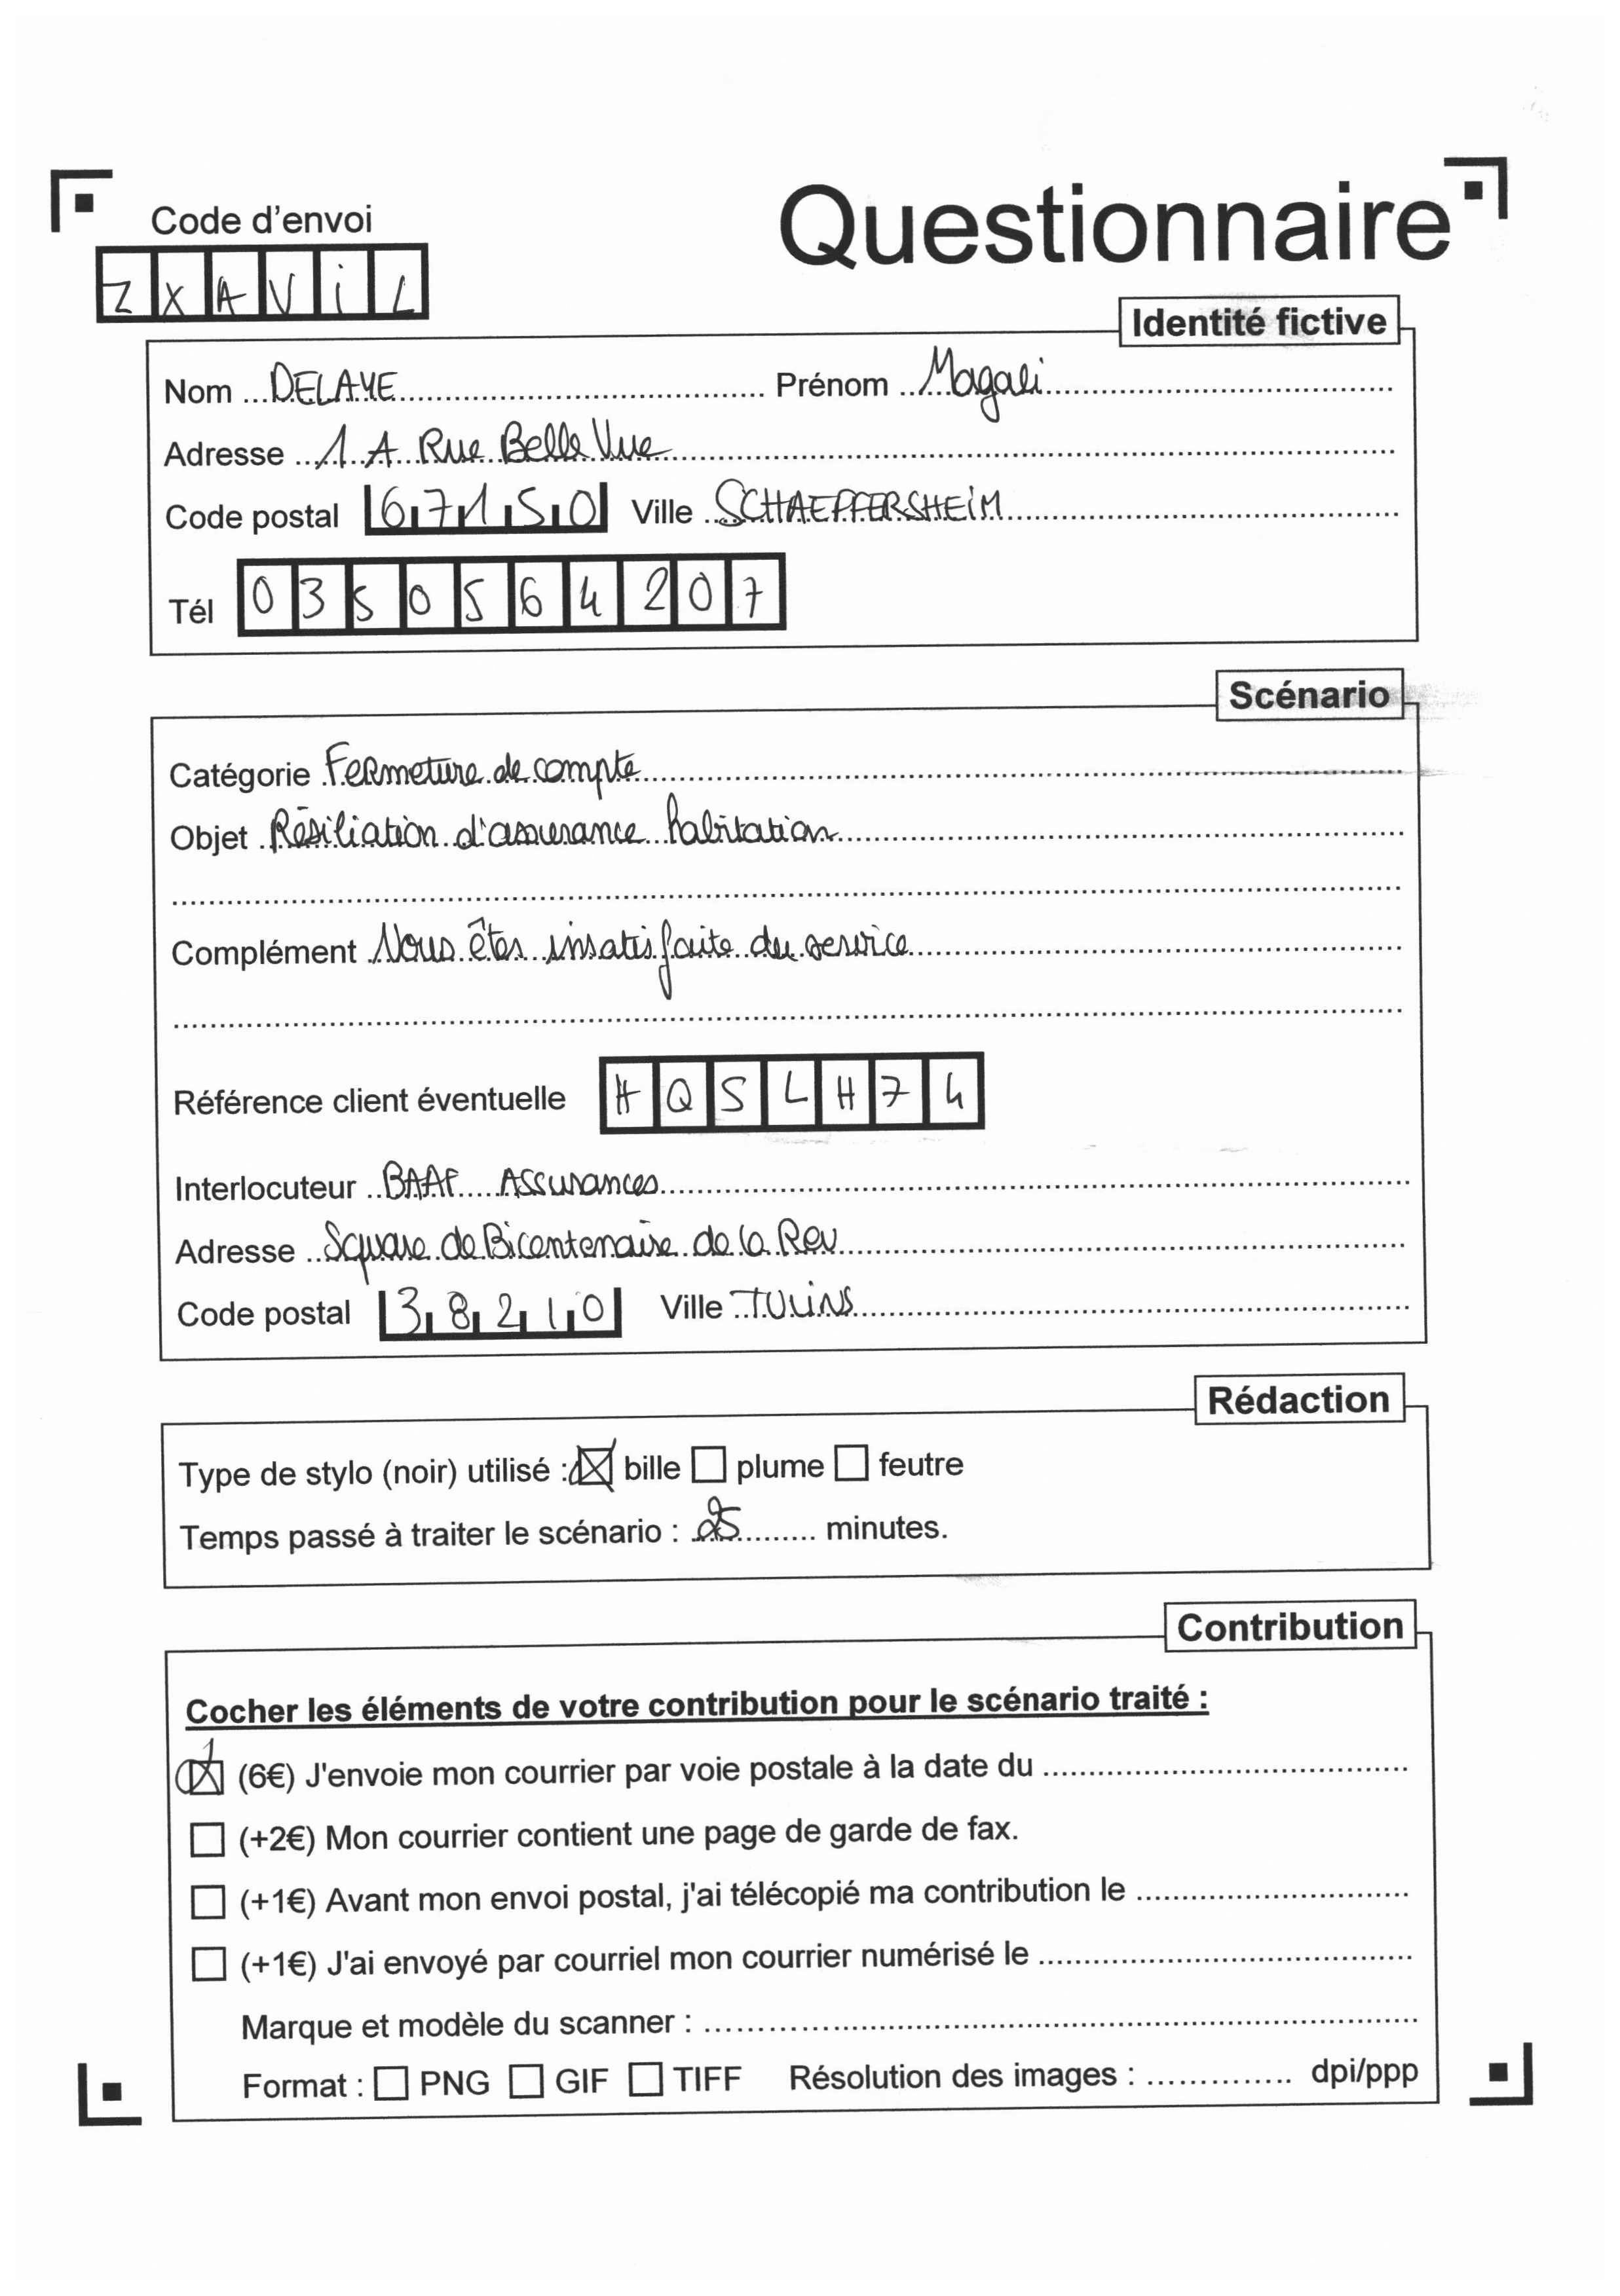 Questionnaire
Code d'envoi
ZXAViL
Identité fictive
Nom DELAYE Prénom Magali
Adresse 1 A Rue Belle Vue
Code postal 67150 Ville SCHAEFFERSHEiM
Tél 0350564207
Scénario
Catégorie Fermeture de compte
Objet Résiliation d'assurance habitation
Complément Vous êtes insatisfaite du service
Référence client éventuelle HQSLH74
Interlocuteur BAAF Assurances
Adresse Square de Bicentenaire de la Rev
Code postal 38210 Ville TULiNS
Rédaction
Type de stylo (noir) utilisé : bille plume feutre
Temps passé à traiter le scénario : 25 minutes.
Contribution
Cocher les éléments de votre contribution pour le scénario traité :
(6€) J'envoie mon courrier par voie postale à la date du
(+2€) Mon courrier contient une page de garde de fax.
(+1€) Avant mon envoi postal, j'ai télécopié ma contribution le
(+1€) J'ai envoyé par courriel mon courrier numérisé le
Marque et modèle du scanner :
Format : PNG GIF TIFF Résolution des images : dpi/ppp